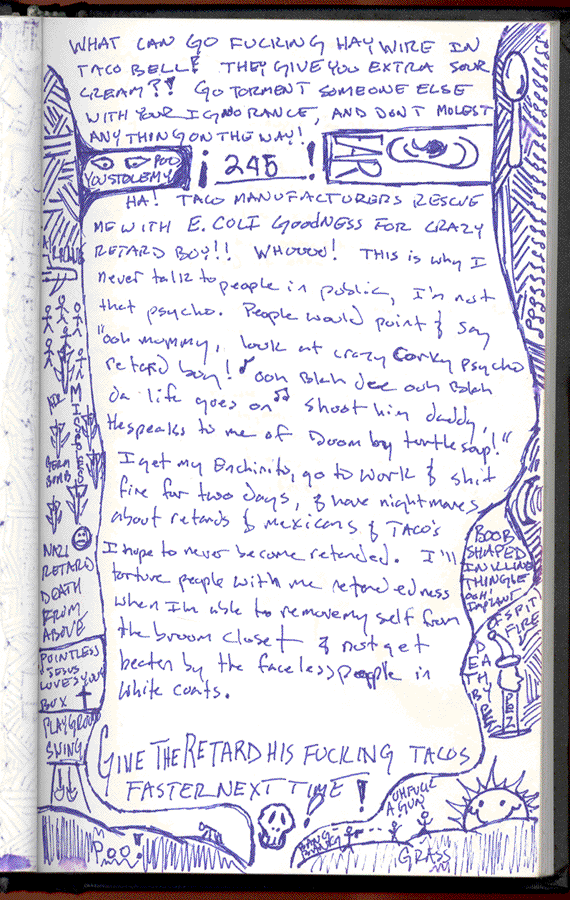 WHAT CAN GO FUCKING HAYWIRE IN
TACO BELL? THEY GIVE YOU EXTRA SOUR
CREAM?! GO TORMENT SOMEONE ELSE
WITH YOUR IGNORANCE, AND DON'T MOLEST
ANYTHING ON THE WAY!
POO
YOU STOLE MY
¡ 245 !
EAR
HA! TACO MANUFACTURERS RESCUE
ME WITH E. COLI GOODNESS FOR CRAZY
RETARD BOY!! WHOOOO! THIS IS WHY I
never talk to people in public, I'm not
that psycho. People would point & say
"ooh mommy, look at crazy Corky psycho
retard boy! ♪ ooh Blah dee ooh Blah
da life goes on ♫ shoot him daddy,
He speaks to me of Doom by turtle soup!"
I get my Enchirito, go to work & shit
fire for two days, & have nightmares
about retards & mexicans & TACO'S
I hope to never become retarded. I'll
torture people with me retardedness
when I'm able to remove my self from
the broom closet & not get
beaten by the faceless people in
white coats.
GIVE THE RETARD HIS FUCKING TACOS
FASTER NEXT TIME!
MISSLES
GERM
BOMB
NAZI
RETARD
DEATH
FROM
ABOVE
POINTLESS
JESUS
LOVES YOU
BOX
PLAYGROUND
SWING
POO!
BOOB
SHAPED
INKLINE
THINGEE
OOH!
IMPLANT
OF SPIT
FIRE
DEATH BY
PEZ
A GUN
BANG
GRASS